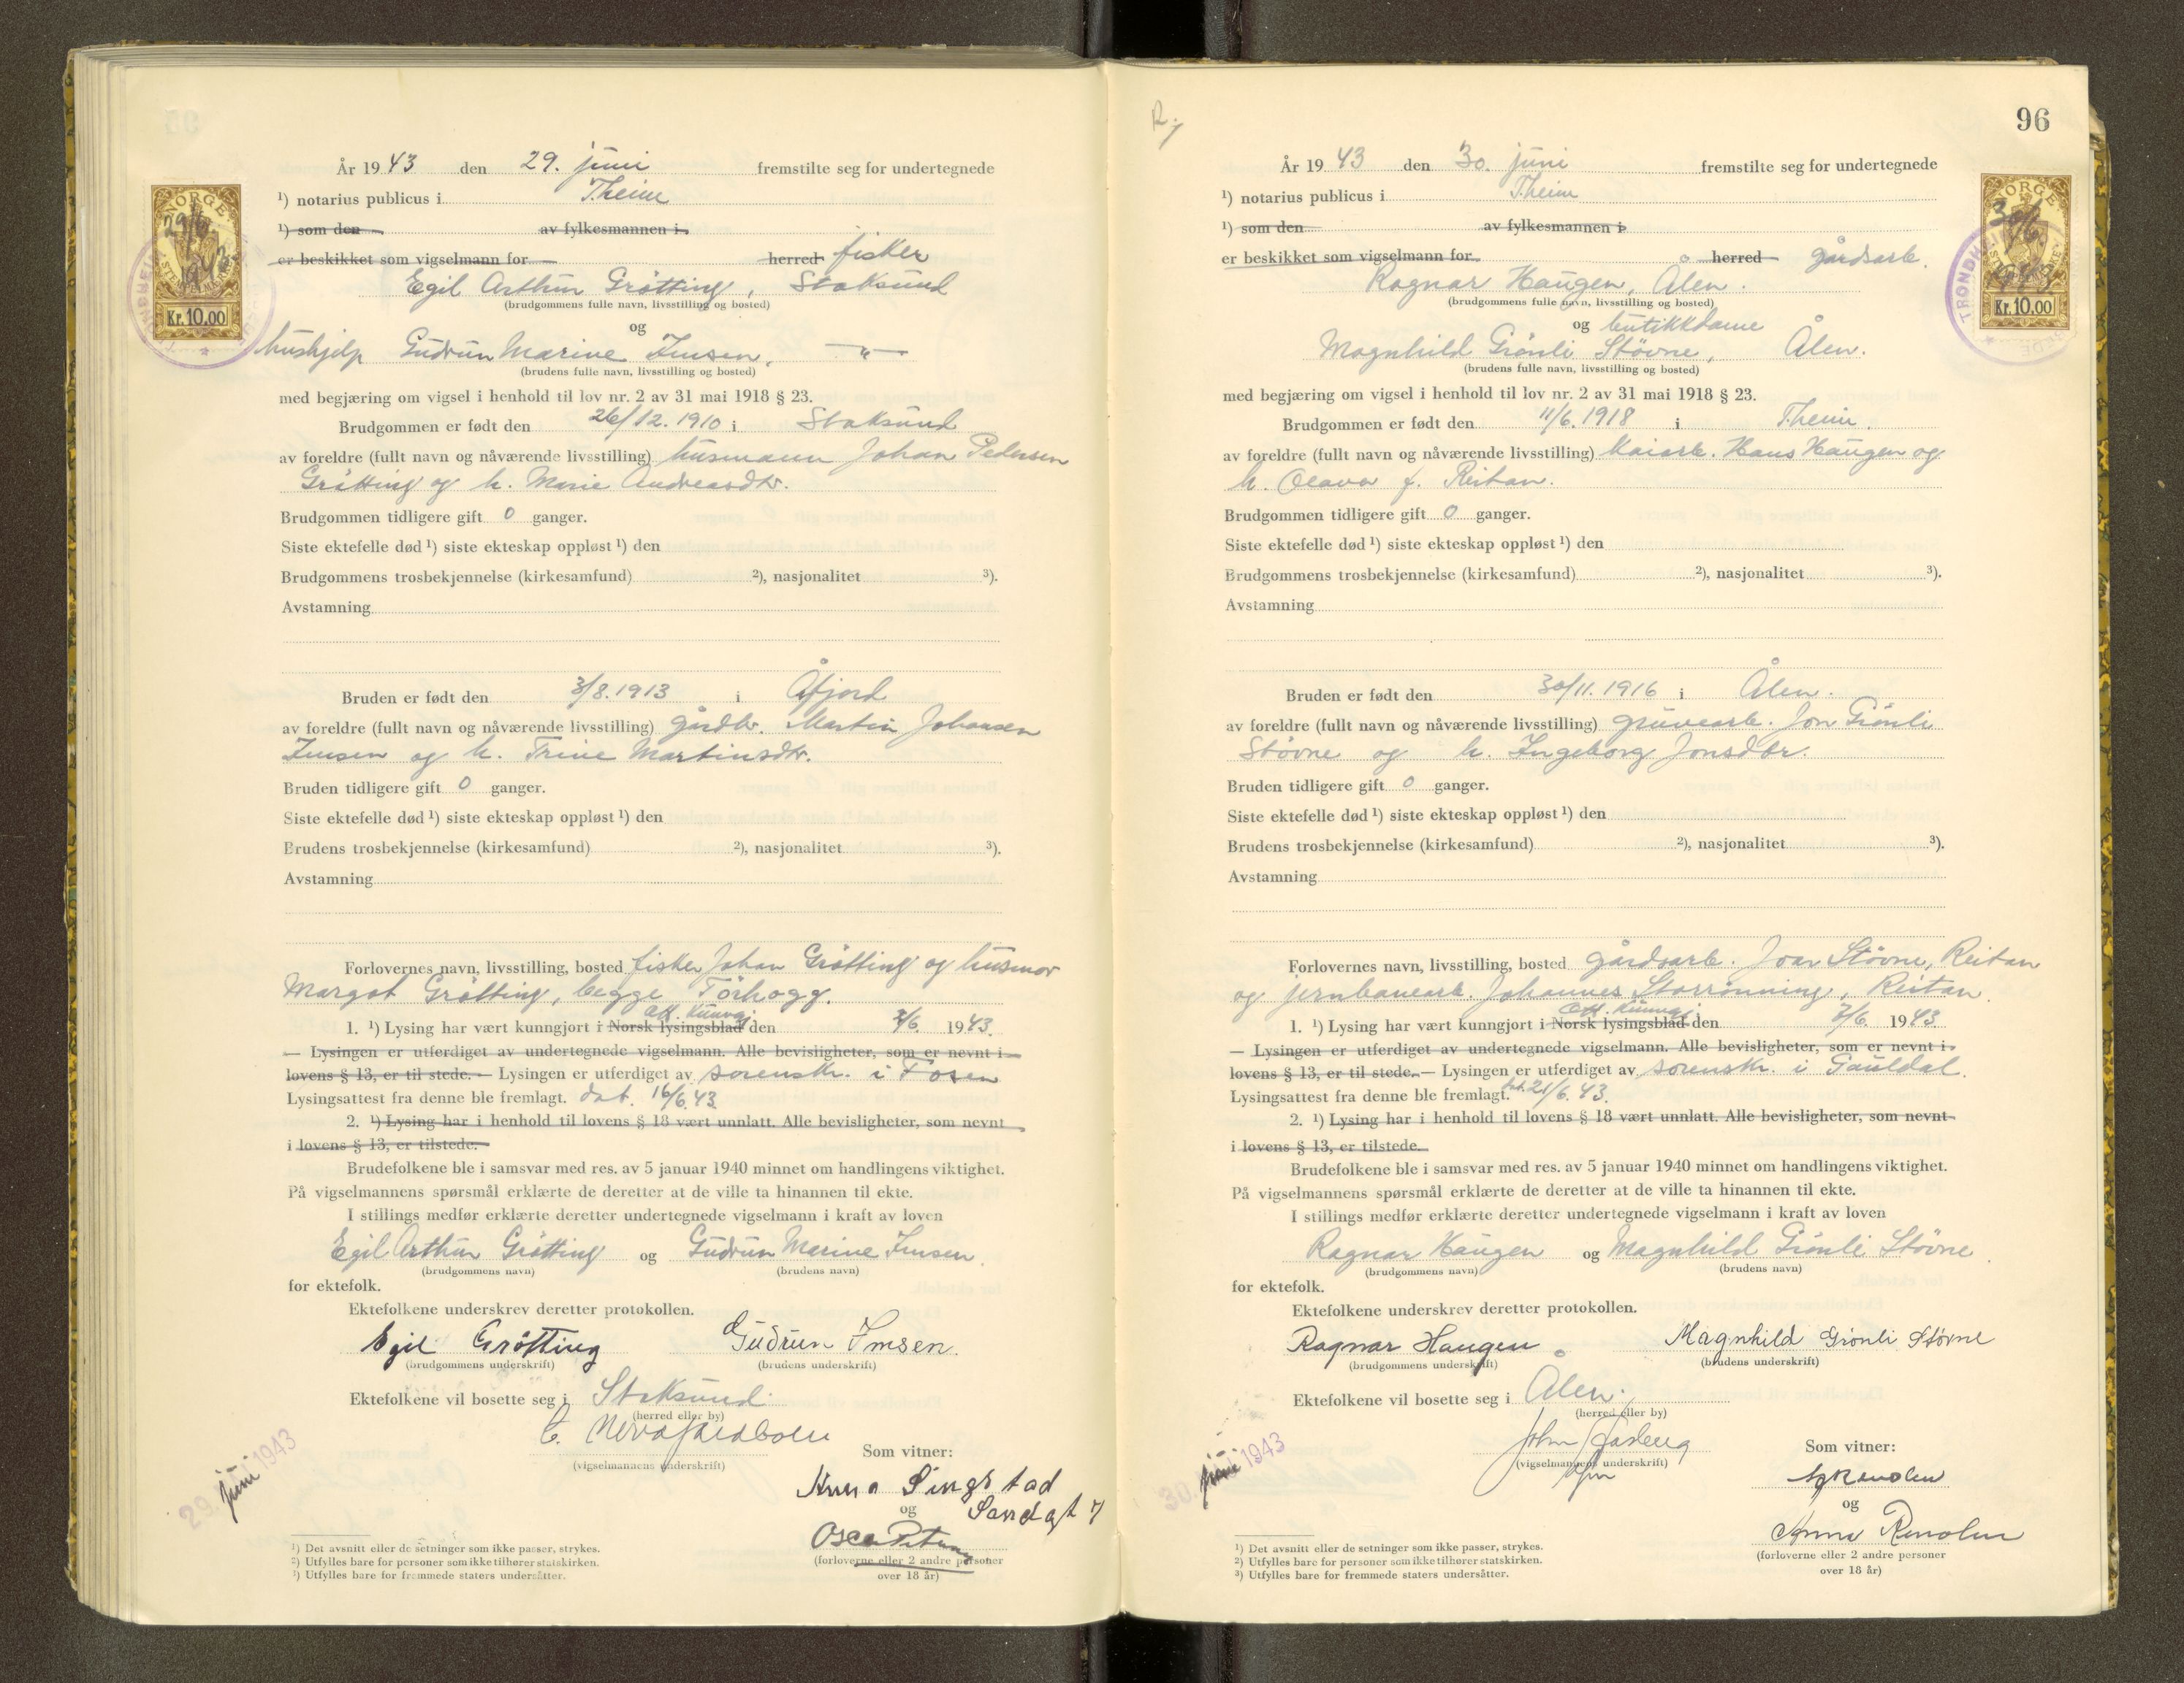 År 1943 den 29. juni fremstilte seg for undertegnede
¹) notarius publicus i T.heim
¹) som den av fylkesmannen i
er beskikket som vigselmann for herred fisker
Egil Arthur Gråtting, Stoksund
(brudgommens fulle navn, livsstilling og bosted)
og
hushjelp Gudrun Marine Imsen, — " —
(brudens fulle navn, livsstilling og bosted)
med begjæring om vigsel i henhold til lov nr. 2 av 31 mai 1918 § 23.
Brudgommen er født den 26/12. 1910 i Stoksund
av foreldre (fullt navn og nåværende livsstilling) husmann Johan Pedersen
Gråtting og h. Marie Andreasdtr.
Brudgommen tidligere gift 0 ganger.
Siste ektefelle død ¹) siste ekteskap oppløst ¹) den
Brudgommens trosbekjennelse (kirkesamfund) ²), nasjonalitet ³).
Avstamning
Bruden er født den 3/8. 1913 i Åfjord
av foreldre (fullt navn og nåværende livsstilling) gårdbr. Martin Johansen
Imsen og h. Trine Martinsdtr.
Bruden tidligere gift 0 ganger.
Siste ektefelle død ¹) siste ekteskap oppløst ¹) den
Brudens trosbekjennelse (kirkesamfund) ²), nasjonalitet ³).
Avstamning
Forlovernes navn, livsstilling, bosted fisker Johan Gråtting og husmor
Margot Gråtting, begge Tørhogg.
Off. Kunngj.
1. ¹) Lysing har vært kunngjort i Norsk lysingsblad den /6. 1943.
— Lysingen er utferdiget av undertegnede vigselmann. Alle bevisligheter, som er nevnt i
lovens § 13, er til stede. — Lysingen er utferdiget av sorenskr. i Fosen
Lysingsattest fra denne ble fremlagt. dat. 16/6. 43.
2. ¹) Lysing har i henhold til lovens § 18 vært unnlatt. Alle bevisligheter, som nevnt
i lovens § 13, er tilstede.
Brudefolkene ble i samsvar med res. av 5 januar 1940 minnet om handlingens viktighet.
På vigselmannens spørsmål erklærte de deretter at de ville ta hinannen til ekte.
I stillings medfør erklærte deretter undertegnede vigselmann i kraft av loven
Egil Arthur Gråtting og Gudrun Marine Imsen.
(brudgommens navn) (brudens navn)
for ektefolk.
Ektefolkene underskrev deretter protokollen.
Egil Gråtting Gudrun Imsen.
(brudgommens underskrift) (brudens underskrift)
Ektefolkene vil bosette seg i Stoksund.
(herred eller by)
Som vitner:
(vigselmannens underskrift)
29. juni 1943
Anna Singstad
og Sandgt 7
(forloverne eller 2 andre personer
over 18 år)
¹) Det avsnitt eller de setninger som ikke passer, strykes.
²) Utfylles bare for personer som ikke tilhører statskirken.
³) Utfylles bare for fremmede staters undersåtter.
NORGE
29/6
1943
Kr. 10.00
96
År 1943 den 30. juni fremstilte seg for undertegnede
¹) notarius publicus i T.heim
¹) som den av fylkesmannen i
er beskikket som vigselmann for herred gårdsarb.
Ragnar Haugen, Ålen.
(brudgommens fulle navn, livsstilling og bosted)
og butikkdame
Magnhild Grønli Støvne, Ålen.
(brudens fulle navn, livsstilling og bosted)
med begjæring om vigsel i henhold til lov nr. 2 av 31 mai 1918 § 23.
Brudgommen er født den 11/6. 1918 i T.heim.
av foreldre (fullt navn og nåværende livsstilling) Kaiarb. Hans Haugen og
h. Olava f. Reitan.
Brudgommen tidligere gift 0 ganger.
Siste ektefelle død ¹) siste ekteskap oppløst ¹) den
Brudgommens trosbekjennelse (kirkesamfund) ²), nasjonalitet ³).
Avstamning
Bruden er født den 30/11. 1916 i Ålen.
av foreldre (fullt navn og nåværende livsstilling) gruvearb. Jon Grønli
Støvne og h. Ingeborg Jonsdtr.
Bruden tidligere gift 0 ganger.
Siste ektefelle død ¹) siste ekteskap oppløst ¹) den
Brudens trosbekjennelse (kirkesamfund) ²), nasjonalitet ³).
Avstamning
Forlovernes navn, livsstilling, bosted gårdsarb. Joar Støvne, Reitan
og jernbanearb. Johannes Storrønning, Reitan.
Off. Kunngj.
1. ¹) Lysing har vært kunngjort i Norsk lysingsblad den /6. 1943.
— Lysingen er utferdiget av undertegnede vigselmann. Alle bevisligheter, som er nevnt i
lovens § 13, er til stede. — Lysingen er utferdiget av sorenskr. i Gauldal.
Lysingsattest fra denne ble fremlagt. dat. 21/6. 43.
2. ¹) Lysing har i henhold til lovens § 18 vært unnlatt. Alle bevisligheter, som nevnt
i lovens § 13, er tilstede.
Brudefolkene ble i samsvar med res. av 5 januar 1940 minnet om handlingens viktighet.
På vigselmannens spørsmål erklærte de deretter at de ville ta hinannen til ekte.
I stillings medfør erklærte deretter undertegnede vigselmann i kraft av loven
Ragnar Haugen og Magnhild Grønli Støvne.
(brudgommens navn) (brudens navn)
for ektefolk.
Ektefolkene underskrev deretter protokollen.
Ragnar Haugen Magnhild Grønli Støvne
(brudgommens underskrift) (brudens underskrift)
Ektefolkene vil bosette seg i Ålen.
(herred eller by)
John
Som vitner:
(vigselmannens underskrift)
30. juni 1943
og
Anna Renolen
(forloverne eller 2 andre personer
over 18 år)
¹) Det avsnitt eller de setninger som ikke passer, strykes.
²) Utfylles bare for personer som ikke tilhører statskirken.
³) Utfylles bare for fremmede staters undersåtter.
NORGE
30/6
1943
Kr. 10.00
TRONDHEIM